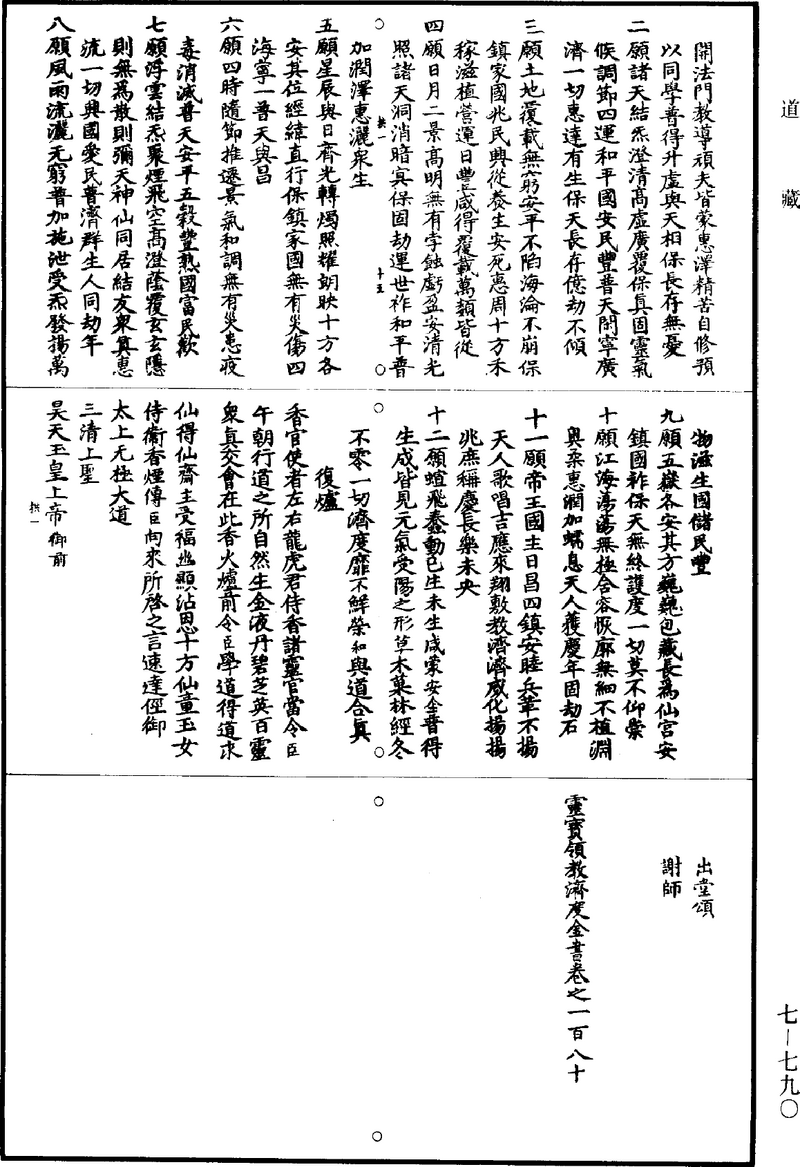 道藏
開法門教導頑夫皆蒙惠澤精苦自修預
以同學普得升虛與天相保長存無憂
二願諸天結炁澄清高虛廣覆保真固靈氣
候調節四運和平國安民豐普天閑寧廣
濟一切惠達有生保天長存億劫不傾
三願土地覆載無窮安平不陷海淪不崩保
鎮家國兆民興從養生安死惠周十方禾
稼滋植營運日豐咸得覆載萬類皆從
四願日月二景高明無有孛蝕虧盈安清光
照諸天洞消暗冥保固劫運世祚和平普
加潤澤惠灑衆生
拱一
十五
五願星辰與日齊光轉燭照耀朗映十方各
安其位經緯直行保鎮家國無有災傷四
海寧一普天興昌
六願四時隨節推遷景氣和調無有災患疫
毒消滅普天安平五穀豐熟國富民歡
七願浮雲結炁聚煙飛空高澄蔭覆玄玄隱
則無爲散則彌天神仙同居結友衆真惠
流一切興國愛民普濟群生人同劫年
八願風雨流灑无窮普加施泄受炁發揚萬
物滋生國儲民豐
九願五嶽各安其方巍巍包藏長爲仙宮安
鎮國祚保天無終護度一切莫不仰崇
十願江海蕩蕩無極含容恢廓無細不植淵
奧柔惠潤加蠕息天人獲慶年固劫石
十一願帝王國主日昌四鎮安睦兵革不揚
天人歌唱吉應來翔敷教濟濟威化揚揚
兆庶稱慶長樂未央
十二願蝖飛蠢動已生未生咸蒙安全普得
生成皆見元氣受陽之形草木菓林經冬
不零一切濟度靡不鮮榮和與道合真
復爐
香官使者左右龍虎君侍香諸靈官當令臣
午朝行道之所自然生金液丹碧芝英百靈
衆真交會在此香火爐前令臣學道得道求
仙得仙齋主受福幽顯沾恩十方仙童玉女
侍衛香煙傳臣向來所啓之言速達徑御
太上无極大道
三清上聖
昊天玉皇上帝御前
拱一
出堂頌
謝師
靈寶領教濟度金書卷之一百八十
七—七九〇